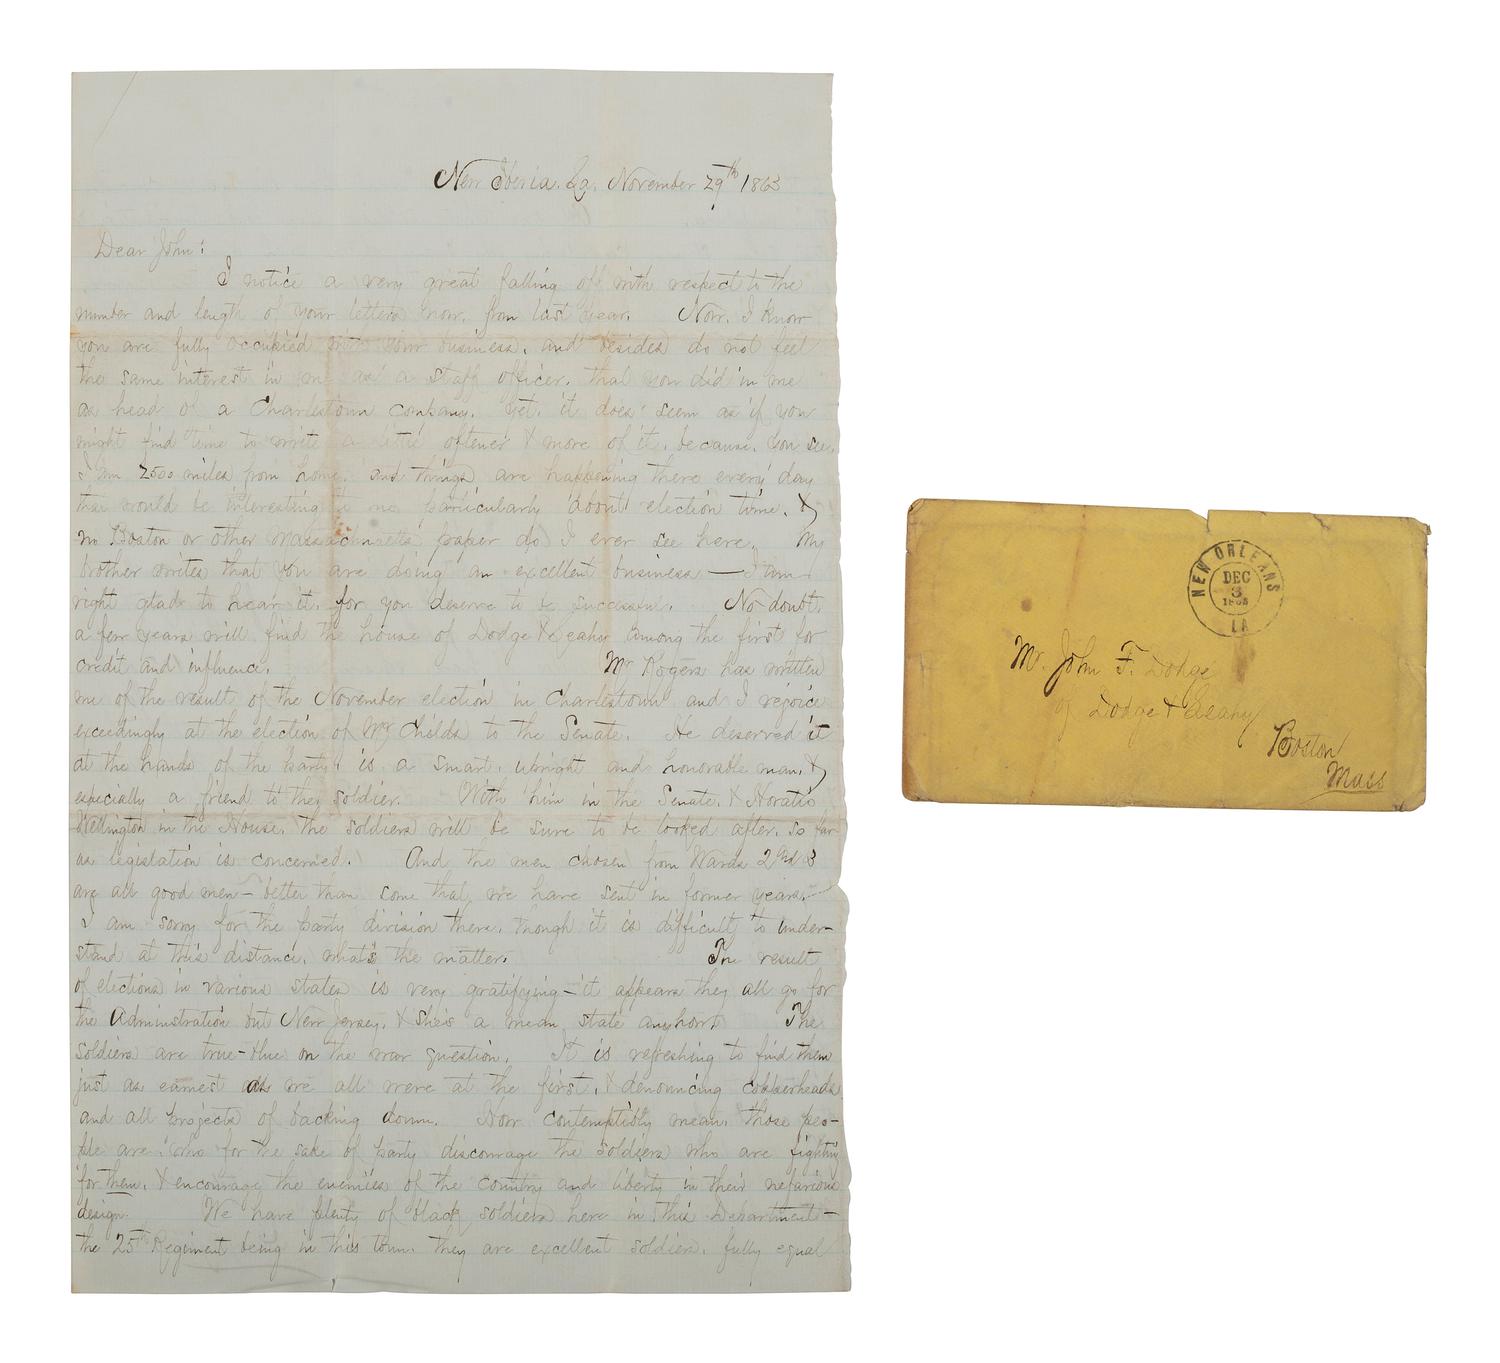 New Iberia, La. November 29th 1863
Dear John:
I notice a very great falling off with respect to the
number and length of your letters now, from last year. Now, I know
you are fully occupied with your business, and besides do not feel
the same interest in me as a staff officer, that you did in me
as head of a Charlestown company. Yet, it does seem as if you
might find time to write a little oftener & more of it, because, you see,
I am 2500 miles from home, and things are happening there every day
that would be interesting to me, particularly about election time, &
no Boston or other Massachusetts paper do I ever see here. My
brother writes that you are doing an excellent business — I am
right glad to hear it, for you deserve to be successful. No doubt,
a few years will find the house of Dodge & Leahy among the first for
credit and influence. Mr Rogers has written
me of the result of the November election in Charlestown and I rejoice
exceedingly at the election of Mr Childs to the Senate. He deserved it
at the hands of the party, is a smart, upright and honorable man, &
especially a friend to the soldier. With him in the Senate, & Horatio
Wellington in the House, the soldiers will be sure to be looked after, so far
as legislation is concerned. And the men chosen from Wards 2 and 3
are all good men – better than some that we have sent in former years.
I am sorry for the party division there, though it is difficult to under-
stand at this distance, what's the matter. The result
of elections in various states is very gratifying – it appears they all go for
the Administration but New Jersey, & she's a mean state anyhow. The
soldiers are true-blue on the war question. It is refreshing to find them
just as earnest as we all were at the first, & denouncing copperheads
and all projects of backing down. How contemptibly mean, those peo-
ple are, who for the sake of party discourage the soldiers who are fighting
for them, & encourage the enemies of the country and liberty in their nefarious
design. We have plenty of black soldiers here in this Department –
the 25th Regiment being in this town. They are excellent soldiers, fully equal
NEW ORLEANS
DEC
3
1863
LA
Mr. John F. Dodge
of Dodge & Leahy
Boston
Mass